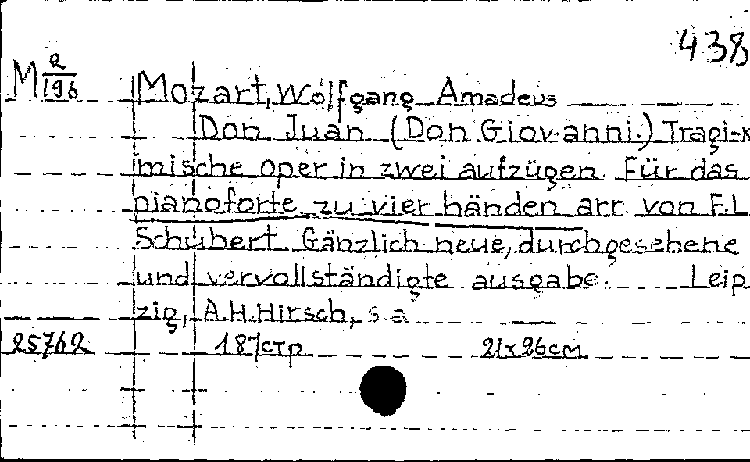 438
M 2/196
Mozart, Wolfgang Amadeus
Don Juan (Don Giovanni.) Tragi-k
mische oper in zwei aufzügen. Für das
pianoforte zu vier händen arr. von F.L
Schubert. Gänzlich neue, durchgesehene
und vervollständigte ausgabe. Leip
zig, A.H.Hirsch, s a
25762 187стр 21x26см